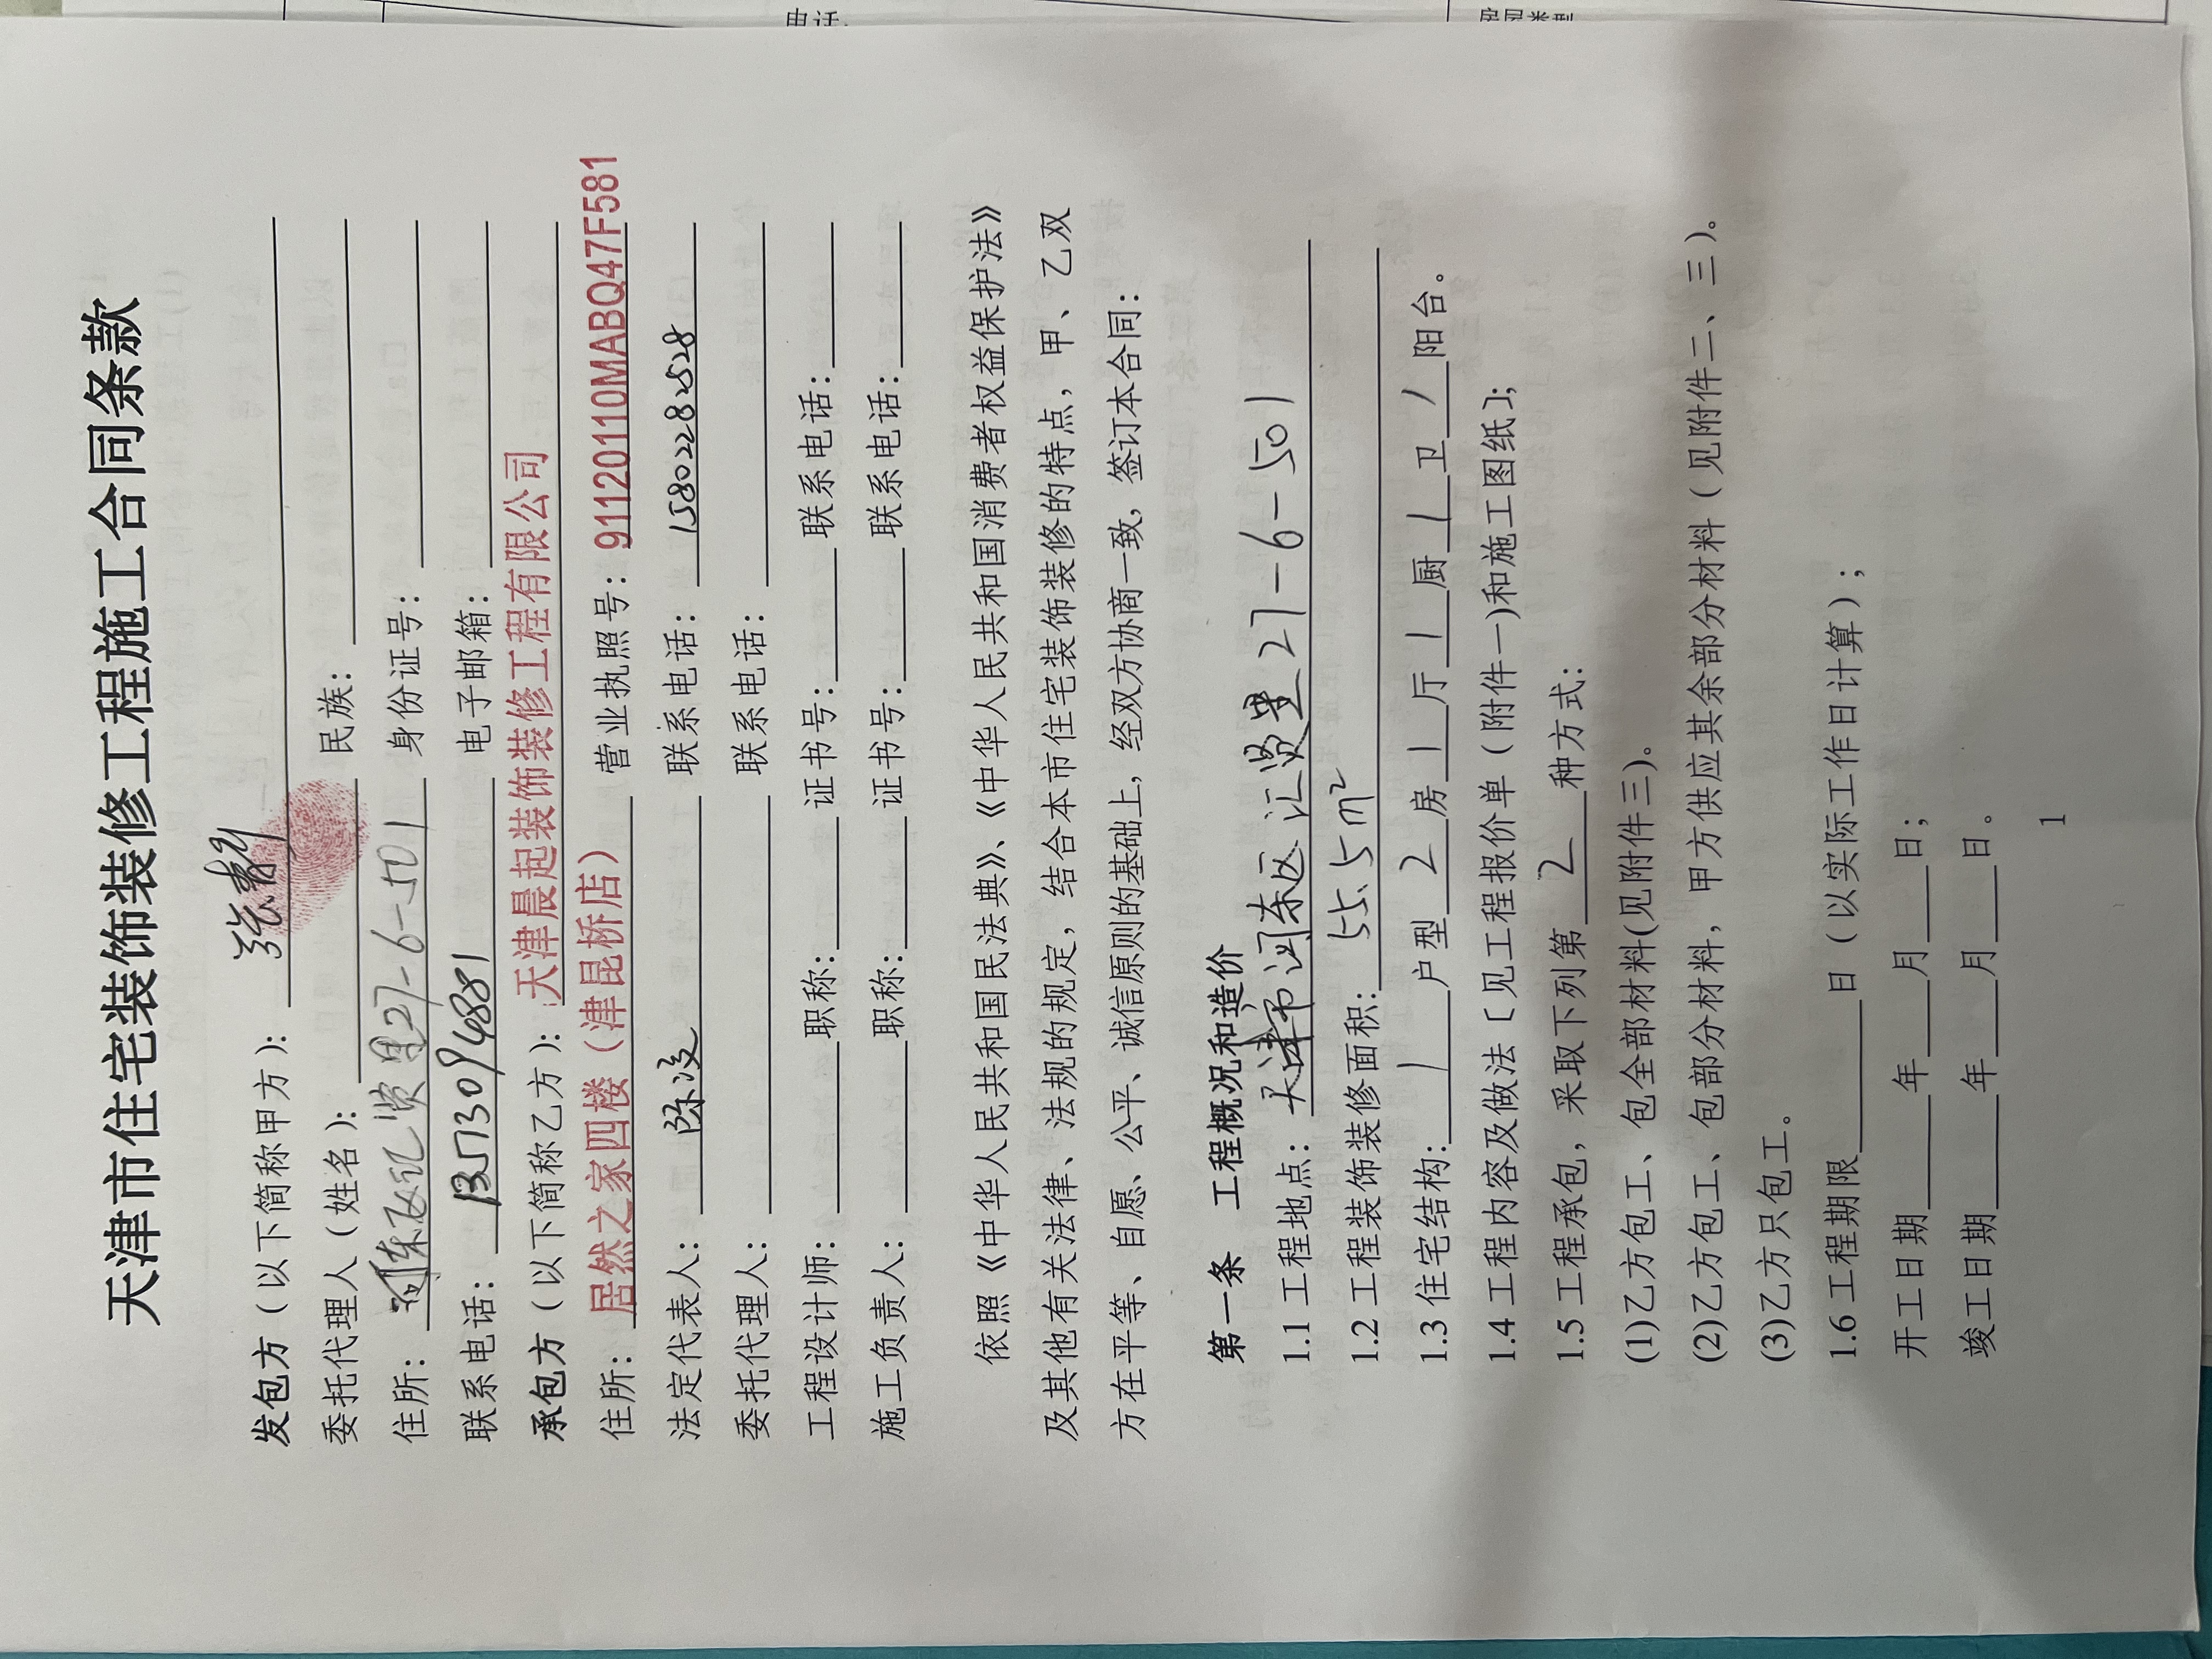 天津市住宅装饰装修工程施工合同条款
发包方（以下简称甲方）：张
委托代理人（姓名）： 民族：
住所：河东区汇贤里27-6-501 身份证号：
联系电话：13573094881 电子邮箱：
承包方（以下简称乙方）：天津晨起装饰装修工程有限公司
住所：居然之家四楼（津昆桥店） 营业执照号：91120110MABQ47F581
法定代表人： 联系电话：15802282528
委托代理人： 联系电话：
工程设计师： 职称： 证书号： 联系电话：
施工负责人： 职称： 证书号： 联系电话：
依照《中华人民共和国民法典》、《中华人民共和国消费者权益保护法》
及其他有关法律、法规的规定，结合本市住宅装饰装修的特点，甲、乙双
方在平等、自愿、公平、诚信原则的基础上，经双方协商一致，签订本合同：
第一条 工程概况和造价
1.1 工程地点：天津市河东区汇贤里27-6-501
1.2 工程装饰装修面积：55.5m²
1.3 住宅结构：1户型2房1厅1厨1卫/阳台。
1.4 工程内容及做法［见工程报价单（附件一)和施工图纸］；
1.5 工程承包，采取下列第2种方式：
(1)乙方包工、包全部材料(见附件三)。
(2)乙方包工、包部分材料，甲方供应其余部分材料（见附件二、三）。
(3)乙方只包工。
1.6 工程期限 日（以实际工作日计算）；
开工日期 年 月 日；
竣工日期 年 月 日。
1